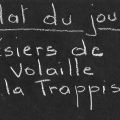 lat du jou
siers de
Volaille
la Trappis